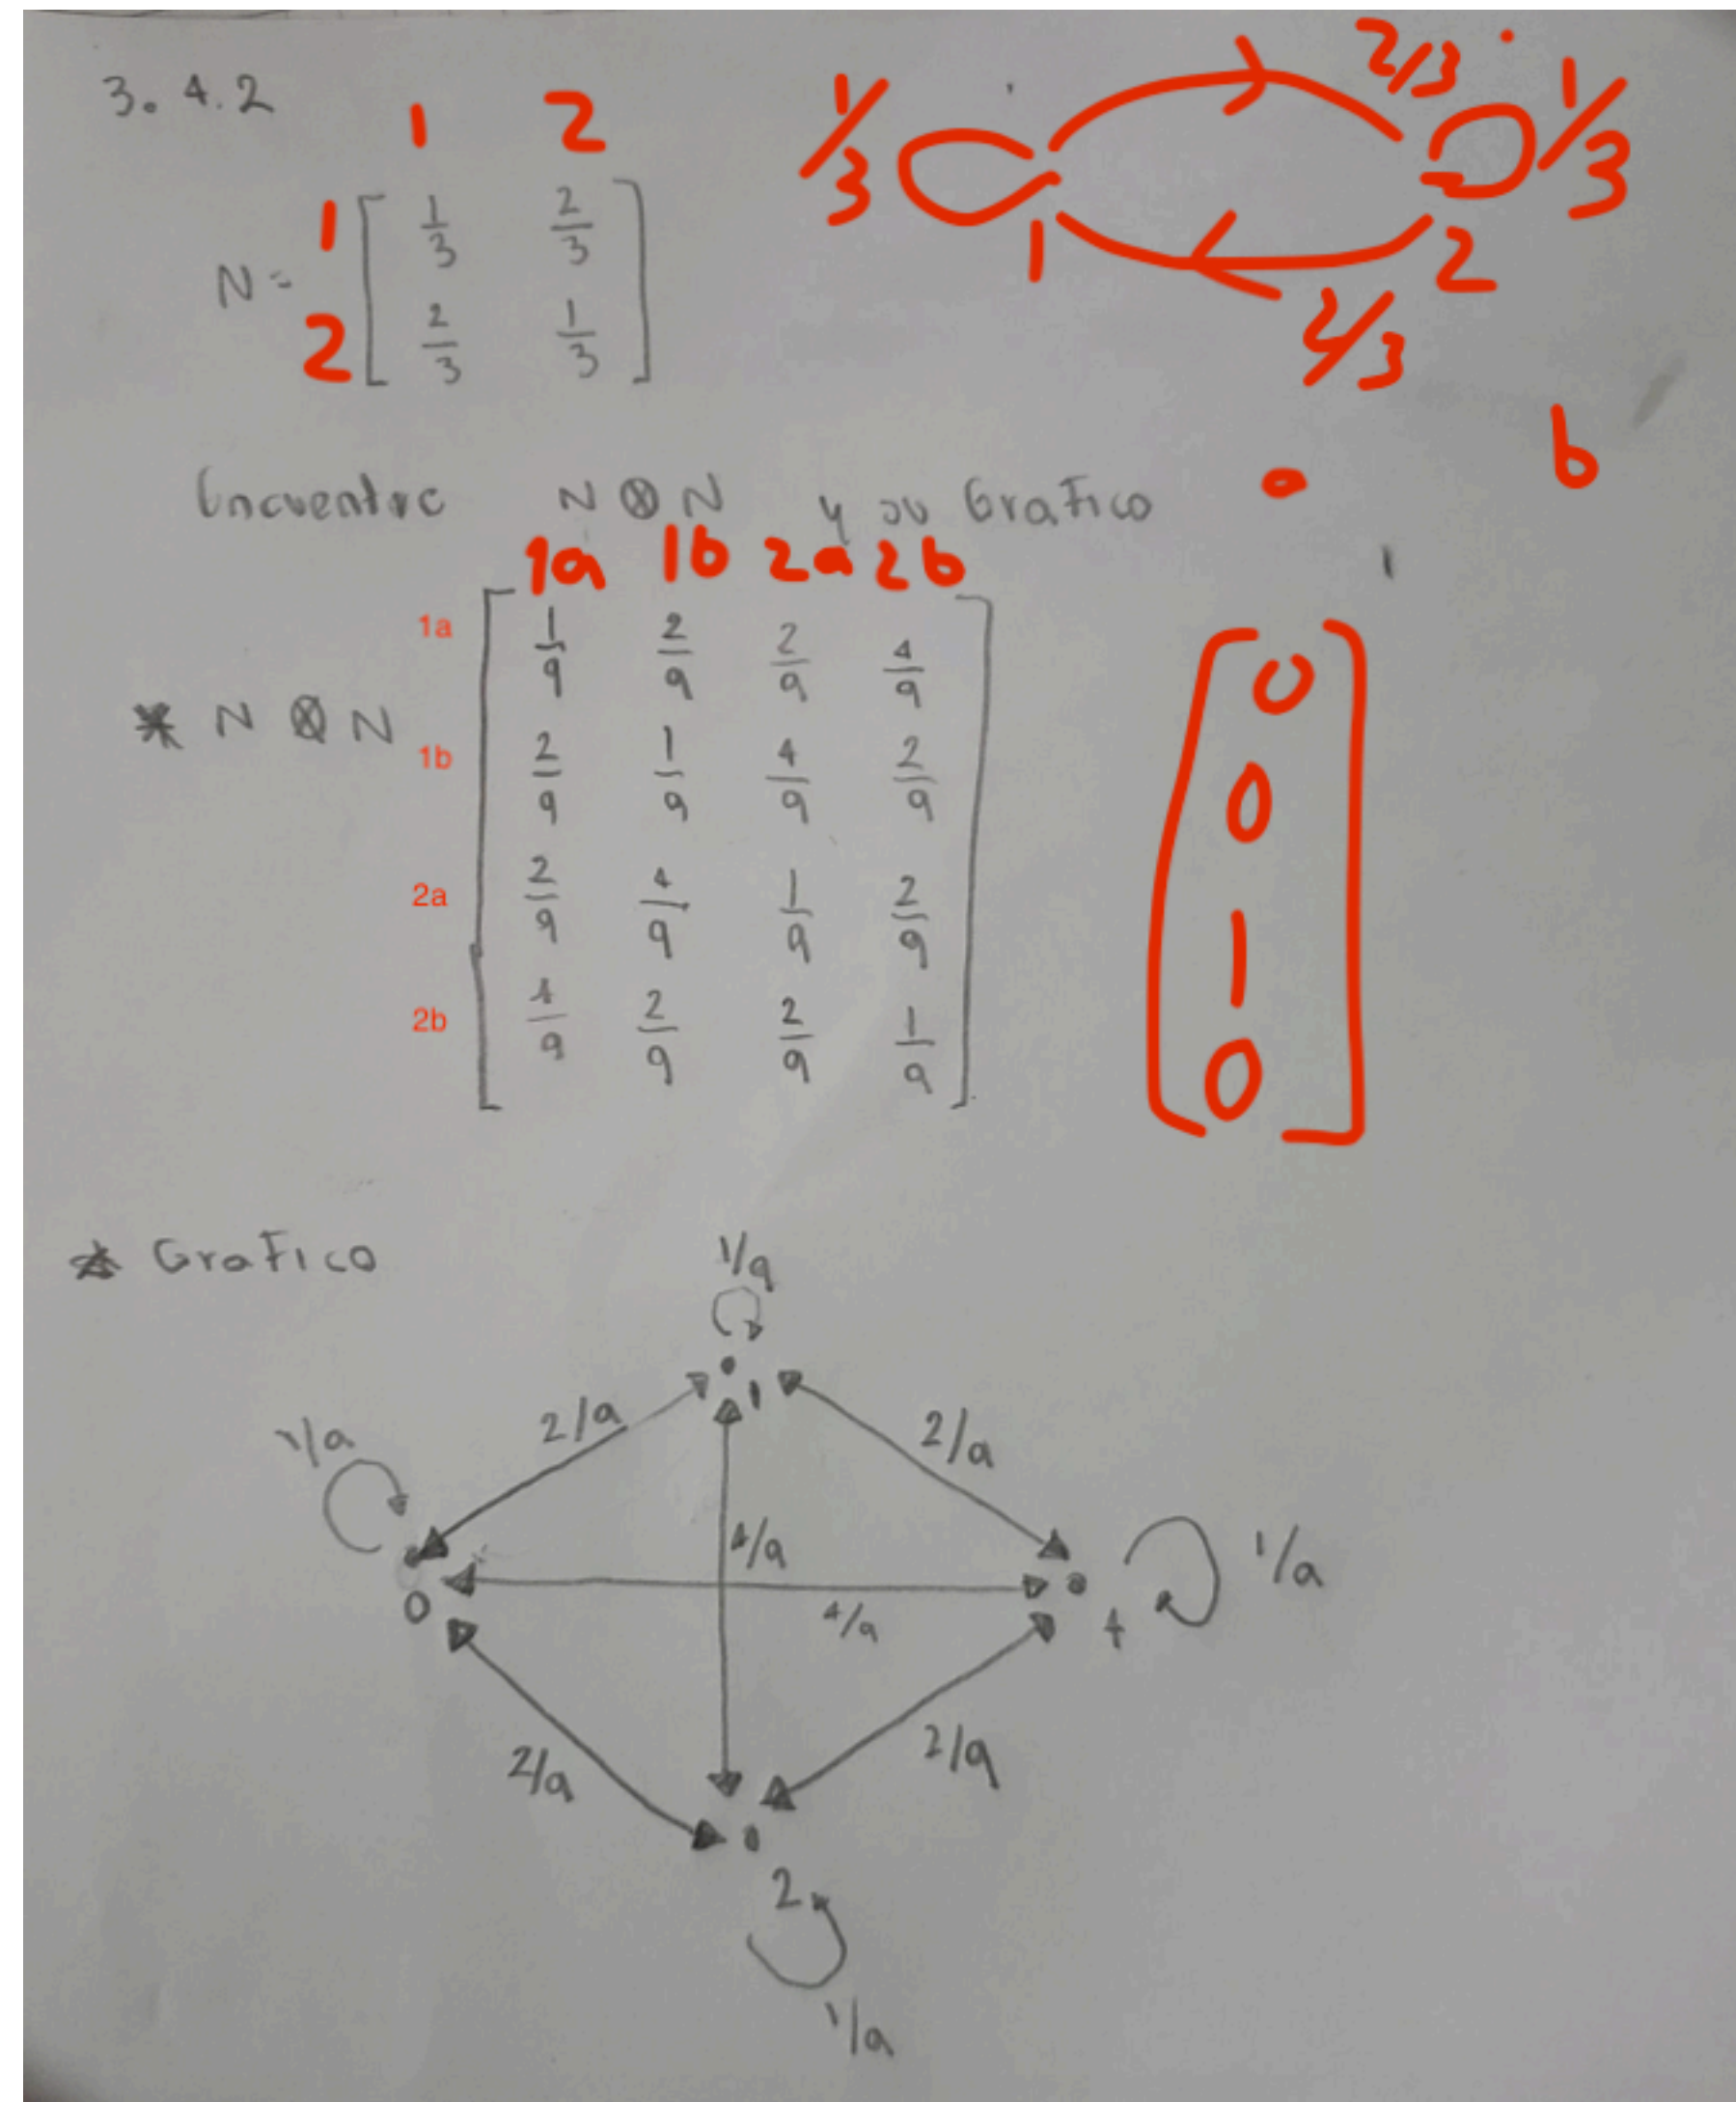 3.4.2
1 2
1 1/3 2/3
N=
2 2/3 1/3
1/3 2/3 1/3
1 2
2/3
Encuentre N ⊗ N y su Grafico
a b
1a 1b 2a 2b
1a 1/9 2/9 2/9 4/9 0
* N ⊗ N
1b 2/9 1/9 4/9 2/9 0
2a 2/9 4/9 1/9 2/9 1
2b 4/9 2/9 2/9 1/9 0
* Grafico
1/9
1
1/9 2/9 2/9
4/9 1/9
0 4/9
2/9 2/9
2
1/9